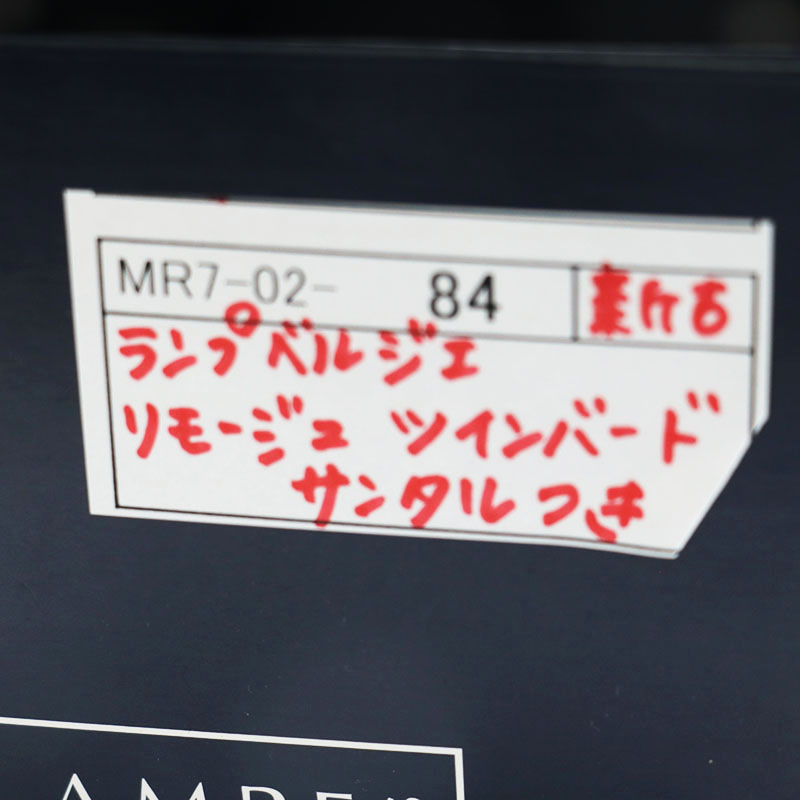 MR7-02- 84
ランプベルジェ
リモージュ ツインバード
サンタルつき